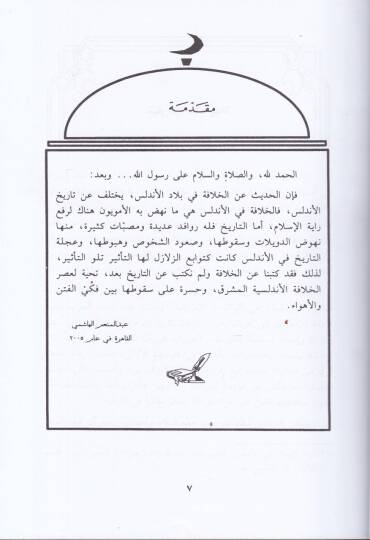 مقدّمة
الحمد لله، والصلاة والسلام على رسول الله... وبعد:
فإن الحديث عن الخلافة في بلاد الأندلس، يختلف عن تاريخ
الأندلس، فالخلافة في الأندلس هي ما نهض به الأمويون هناك لرفع
راية الإسلام، أما التاريخ فله روافد عديدة ومصبّات كثيرة، منها
نهوض الدويلات وسقوطها، وصعود الشخوص وهبوطها، وعجلة
التاريخ في الأندلس كانت كتوابع الزلازل لها التأثير تلو التأثير،
لذلك فقد كتبنا عن الخلافة ولم نكتب عن التاريخ بعد، تحية لعصر
الخلافة الأندلسية المشرق، وحسرة على سقوطها بين فكّيْ الفتن
والأهواء.
عبدالمنعم الهاشمي
القاهرة في عام ٢٠٠٥
٧